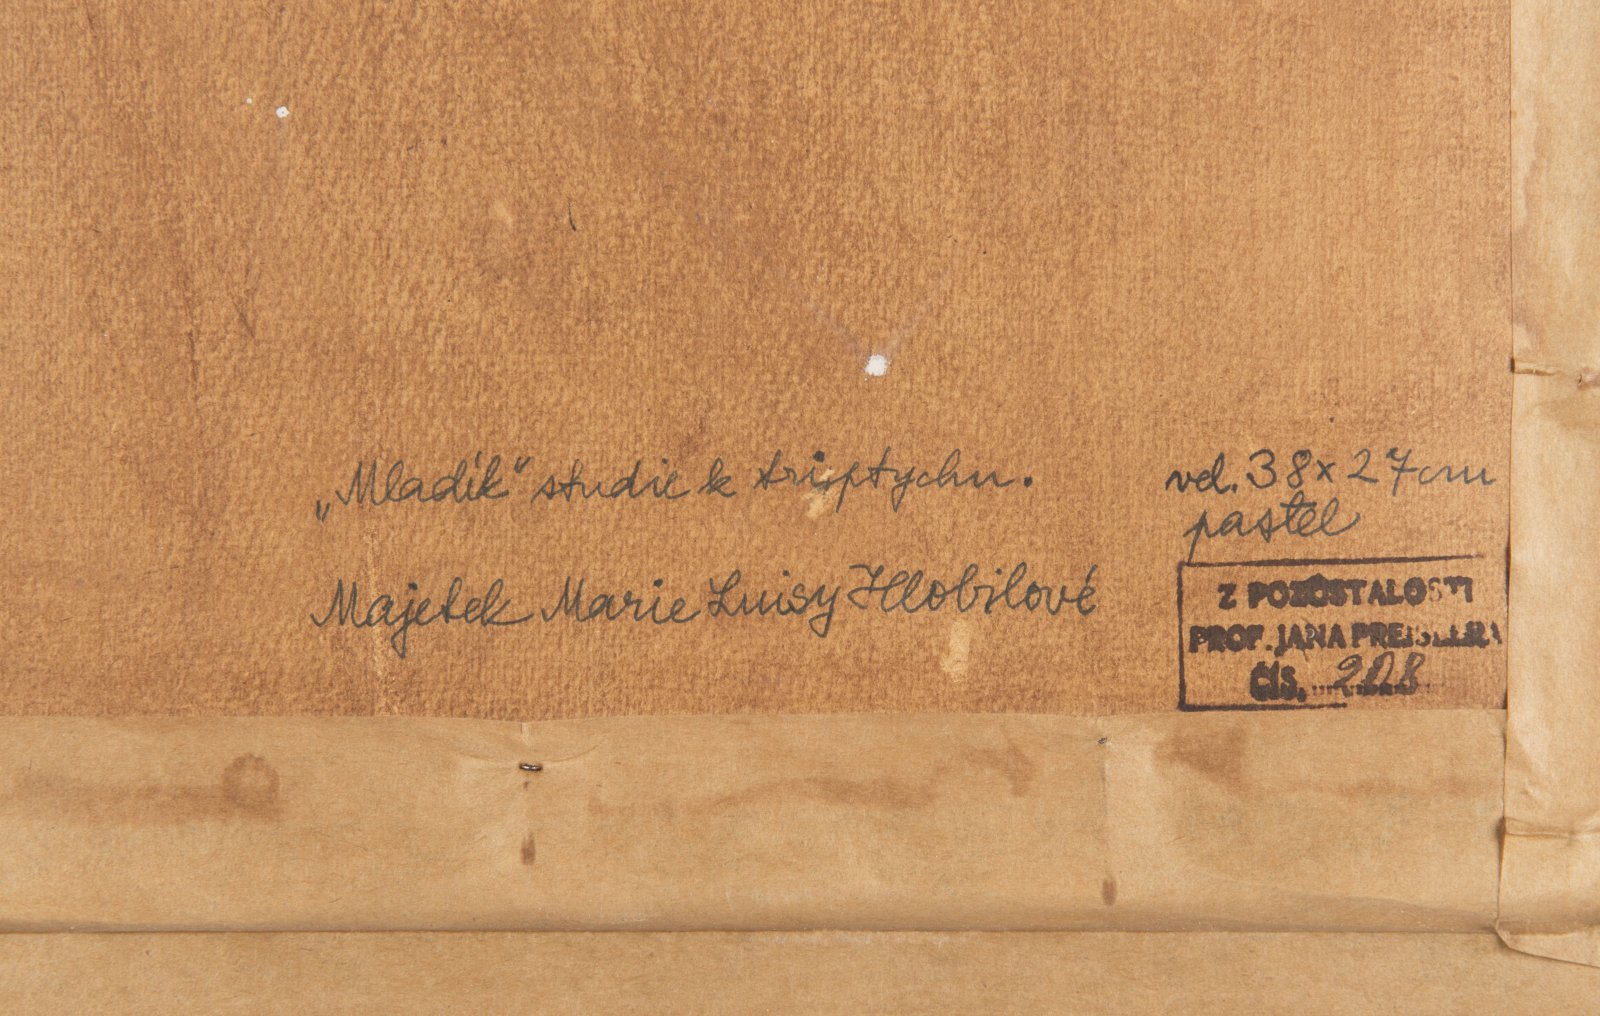 „Mladík“ studie k triptychu.
Majetek Marie Luisy Hlobilové
vel. 38x27cm
pastel
Z POZŮSTALOSTI
PROF. JANA PREISLERA
ČÍS. 208